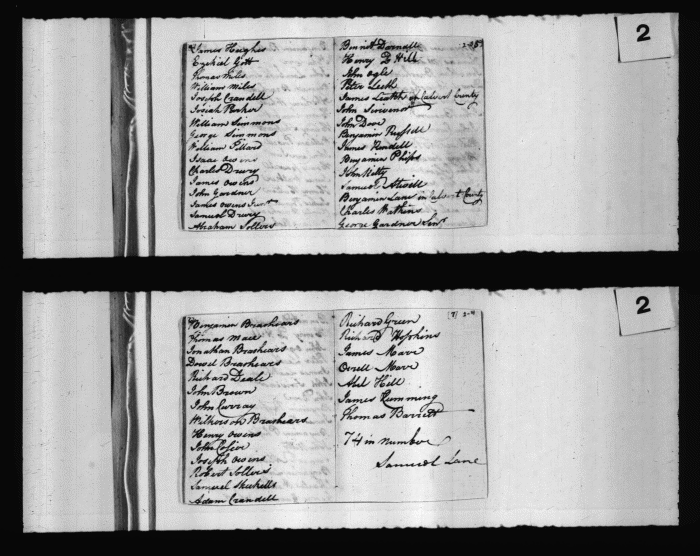 2
James Hughes
Ezekiel Gott
Thomas Miles
William Miles
Joseph Crandell
Josiah Parker
William Simmons
George Simmons
William Pillard
Isaac Owens
Charles Drury
James Owens
John Gardner
James Owens Junr
Samuel Drury
Abraham Sollers
Bennet Darnall
Henry D Hill
John Ogle
Peter Leith
James Leatch of Calvert County
John Scrivenor
John Dove
Benjamin Russell
James Randell
Benjamin Phips
John Kitty
Samuel Atwell
Benjamin Lane in Calvert County
Charles Watkins
George Gardner Senr
2
Benjamin Brashears
Thomas Mace
Jonathan Brashears
Dowel Brashears
Richard Deale
John Brown
John Curray
Wilkerson Brashears
Henry Owens
John Cosier
Joseph Owens
Robert Sollers
Samuel Skickells
Adam Crandell
Richard Green
Richard Hopkins
James Mare
Overell Mare
Abel Hill
James Kumming
Thomas Barrett
74 in number
Samuel Lane